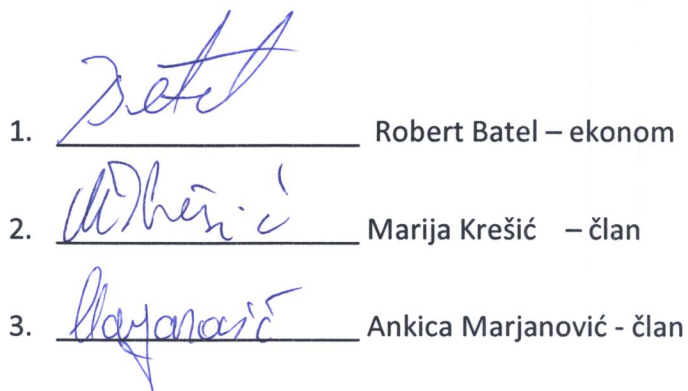 1. Batel Robert Batel – ekonom
2. M Krešić Marija Krešić – član
3. Marjanović Ankica Marjanović - član